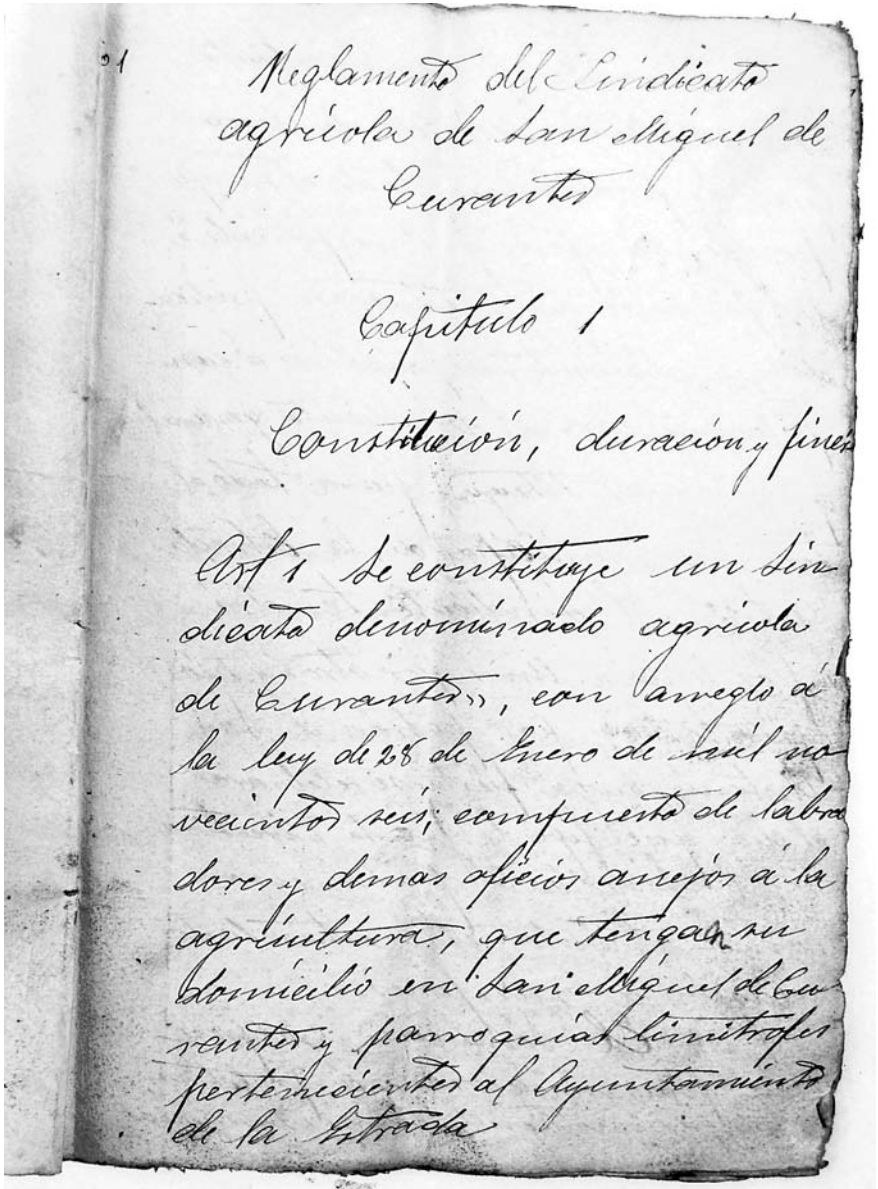 Reglamento del Sindicato
agrícola de San Miguel de
Curantes
Capitulo 1
Constitución, duración y fines
Art 1 Se constituye un Sin
dicato denominado agricola
de Curantes", con arreglo á
la ley de 28 de Enero de mil no
vecientos seis, compuesto de labra
dores y demas oficios anejos á la
agricultura, que tengan su
domicilio en San Miguel de Cu
rantes y parroquias limitrofes
pertenecientes al Ayuntamiento
de la Estrada